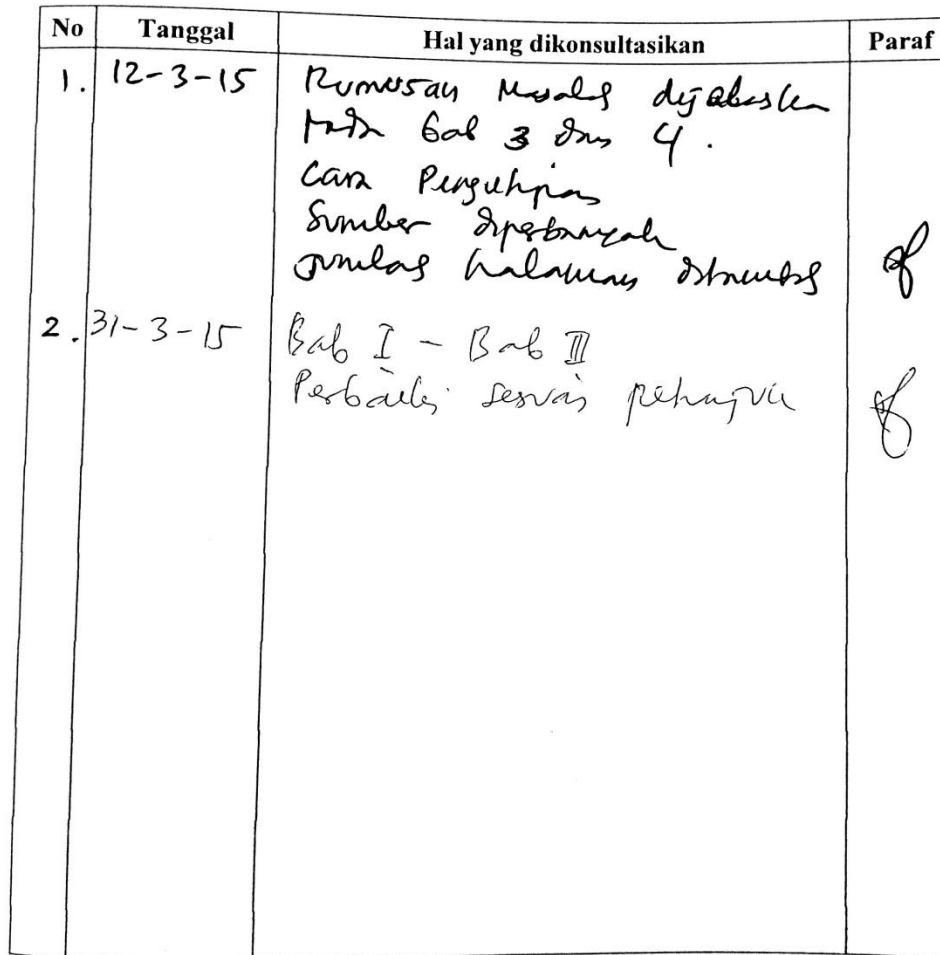 No Tanggal Hal yang dikonsultasikan Paraf
1. 12-3-15 Rumusan Masalah dijabarkan
pada bab 3 dan 4.
Cara Pengutipan
Sumber diperbanyak
Jumlah halaman ditambah
2. 31-3-15 Bab I - Bab III
Perbaiki sesuai petunjuk